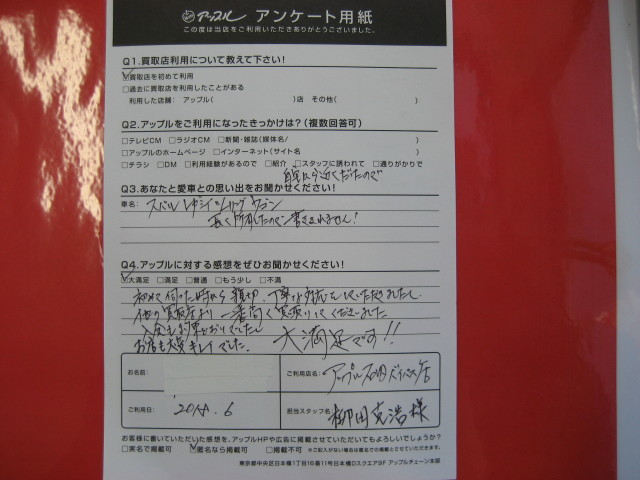 アップル アンケート用紙
この度は当店をご利用いただきありがとうございました。
Q1.買取店利用について教えて下さい!
☑買取店を初めて利用
□過去に買取店を利用したことがある
利用した店舗: アップル( )店 その他( )
Q2.アップルをご利用になったきっかけは?(複数回答可)
□テレビCM □ラジオCM □新聞・雑誌(媒体名/ )
□アップルのホームページ □インターネット(サイト名 )
□チラシ □DM □利用経験があるので □紹介 □スタッフに誘われて □通りがかりで
自宅から近くだったので
Q3.あなたと愛車との思い出をお聞かせください!
車名: スバル レガシィツーリングワゴン
長く所有したので書ききれません!
Q4.アップルに対する感想をぜひお聞かせください!
☑大満足 □満足 □普通 □もう少し □不満
初めて伺った時から親切、丁寧な対応をしていただきましたし、
他の買取店より一番高く買取りしてくださいました
入金も約束どおりでしたし
お店も大変キレイでした。 大満足です!!
お名前
ご利用店名: アップル石岡バイパス店
ご利用日: 2014.6
担当スタッフ名: 柳田克浩様
お客様に書いていただいた感想を、アップルHPや広告に掲載させていただいてもよろしいでしょうか?
□実名で掲載可 ☑匿名なら掲載可 □掲載不可 ※ご記入がない場合は匿名での掲載とさせていただきます。
東京都中央区日本橋1丁目16番11号日本橋Dスクエア9F アップルチェーン本部